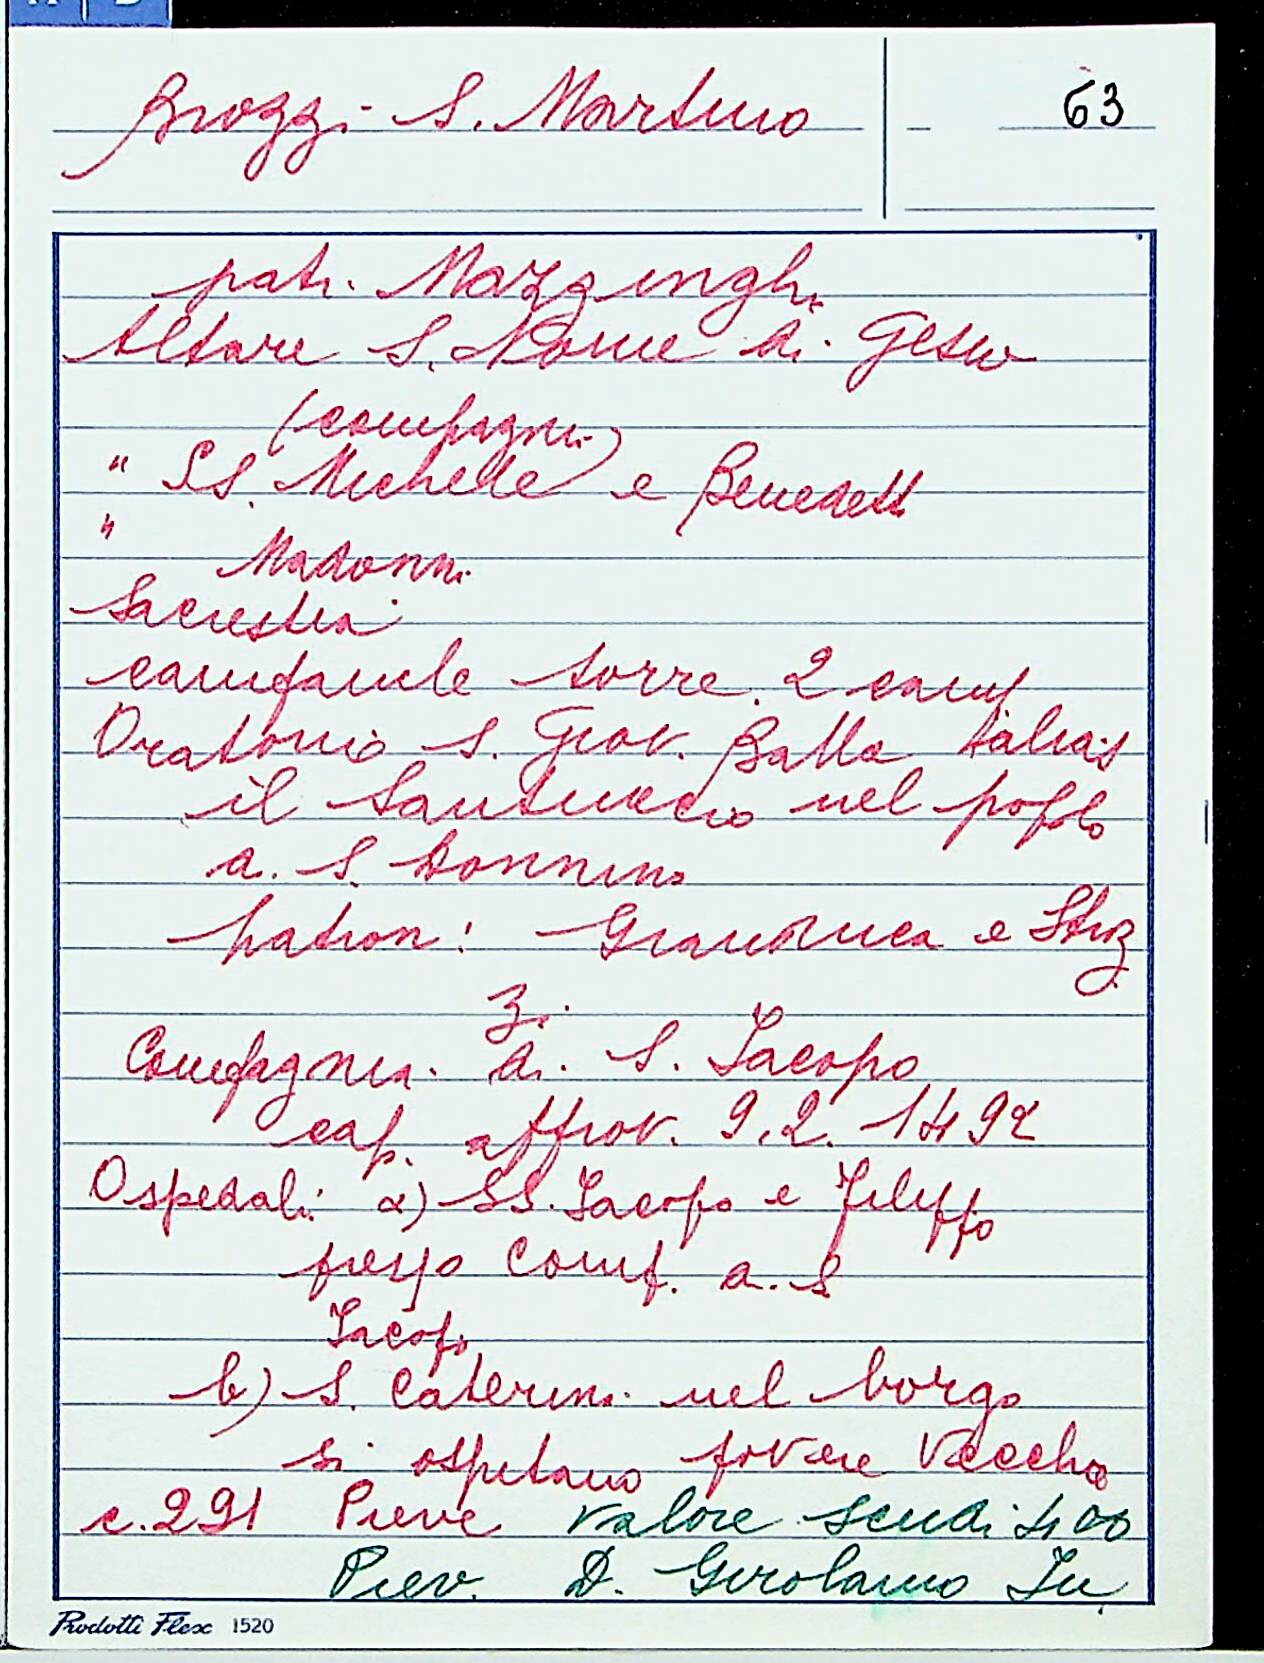 Brozzi S. Martino
63
patr. Mazzinghi
Altare S. Nome di Gesu
(compagnia)
" SS. Michele e Benedett
" Madonna
Sacrestia
campanile torre. 2 camp
Oratorio S. Giov. Batta alias
il Santuccio nel popolo
a. S. Donnino
patron: Granduca e Stroz
zi.
Compagnia di S. Jacopo
cap. approv. 9.2. 1492
Ospedali: a) SS. Jacopo e Filippo
presso Comp. a. S
Jacopo
b) S. Caterina nel borgo
si ospitano povere vecchie
c.291 Pieve valore scudi 400
Piev. D. Girolamo
Prodotti Flex 1520